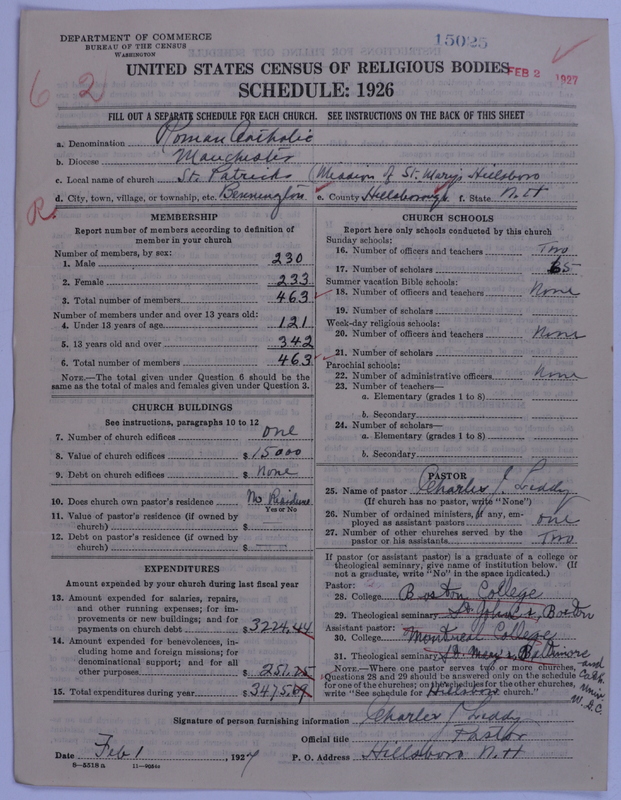 DEPARTMENT OF COMMERCE
BUREAU OF THE CENSUS
WASHINGTON
15025
UNITED STATES CENSUS OF RELIGIOUS BODIES
FEB 2 1927
SCHEDULE: 1926
62
FILL OUT A SEPARATE SCHEDULE FOR EACH CHURCH. SEE INSTRUCTIONS ON THE BACK OF THIS SHEET
a. Denomination Roman Catholic
b. Diocese Manchester
c. Local name of church St. Patricks (Mission of St. Mary, Hillsboro
d. City, town, village, or township, etc. Bennington e. County Hillsborough f. State N.H
R.
MEMBERSHIP
Report number of members according to definition of
member in your church
Number of members, by sex:
1. Male 230
2. Female 233
3. Total number of members 463
Number of members under and over 13 years old:
4. Under 13 years of age 121
5. 13 years old and over 342
6. Total number of members 463
NOTE.—The total given under Question 6 should be
same as the total of males and females given under Question 3.
CHURCH BUILDINGS
See instructions, paragraphs 10 to 12
7. Number of church edifices one
8. Value of church edifices $ 15000
9. Debt on church edifices $ None
10. Does church own pastor's residence No Residence
Yes or No
11. Value of pastor's residence (if owned by
church) $
12. Debt on pastor's residence (if owned by
church) $
EXPENDITURES
Amount expended by your church during last fiscal year
13. Amount expended for salaries, repairs,
and other running expenses; for im-
provements or new buildings; and for
payments on church debt $ 3224.44
14. Amount expended for benevolences, in-
cluding home and foreign missions; for
denominational support; and for all
other purposes $ 251.25
15. Total expenditures during year $ 3475.69
CHURCH SCHOOLS
Report here only schools conducted by this church
Sunday schools:
16. Number of officers and teachers Two
17. Number of scholars 65
Summer vacation Bible schools:
18. Number of officers and teachers None
19. Number of scholars
Week-day religious schools:
20. Number of officers and teachers None
21. Number of scholars
Parochial schools:
22. Number of administrative officers None
23. Number of teachers—
a. Elementary (grades 1 to 8)
b. Secondary
24. Number of scholars—
a. Elementary (grades 1 to 8)
b. Secondary
PASTOR
25. Name of pastor Charles J. Leddy
(If church has no pastor, write "None")
26. Number of ordained ministers, if any, em-
ployed as assistant pastors one
27. Number of other churches served by the
pastor or his assistants Two
If pastor (or assistant pastor) is a graduate of a college or
theological seminary, give name of institution below. (If
not a graduate, write "No" in the space indicated.)
Pastor:
28. College Boston College
29. Theological seminary St. John's, Boston
Assistant pastor:
30. College Montreal College
31. Theological seminary St. Mary's, Baltimore
and Cath. Univ. W. D.C.
NOTE.—Where one pastor serves two or more churches,
Questions 28 and 29 should be answered only on the schedule
for one of the churches; on the schedules for the other churches,
write "See schedule for Hillsboro church."
Signature of person furnishing information Charles J. Leddy
Official title Pastor
Date Feb 1, 1927 P. O. Address Hillsboro N.H
8—5318a 11—9084a